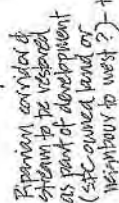 Riparian corridor &
stream to be restored
as part of development
(site owned land or
neighbour to west ?) -